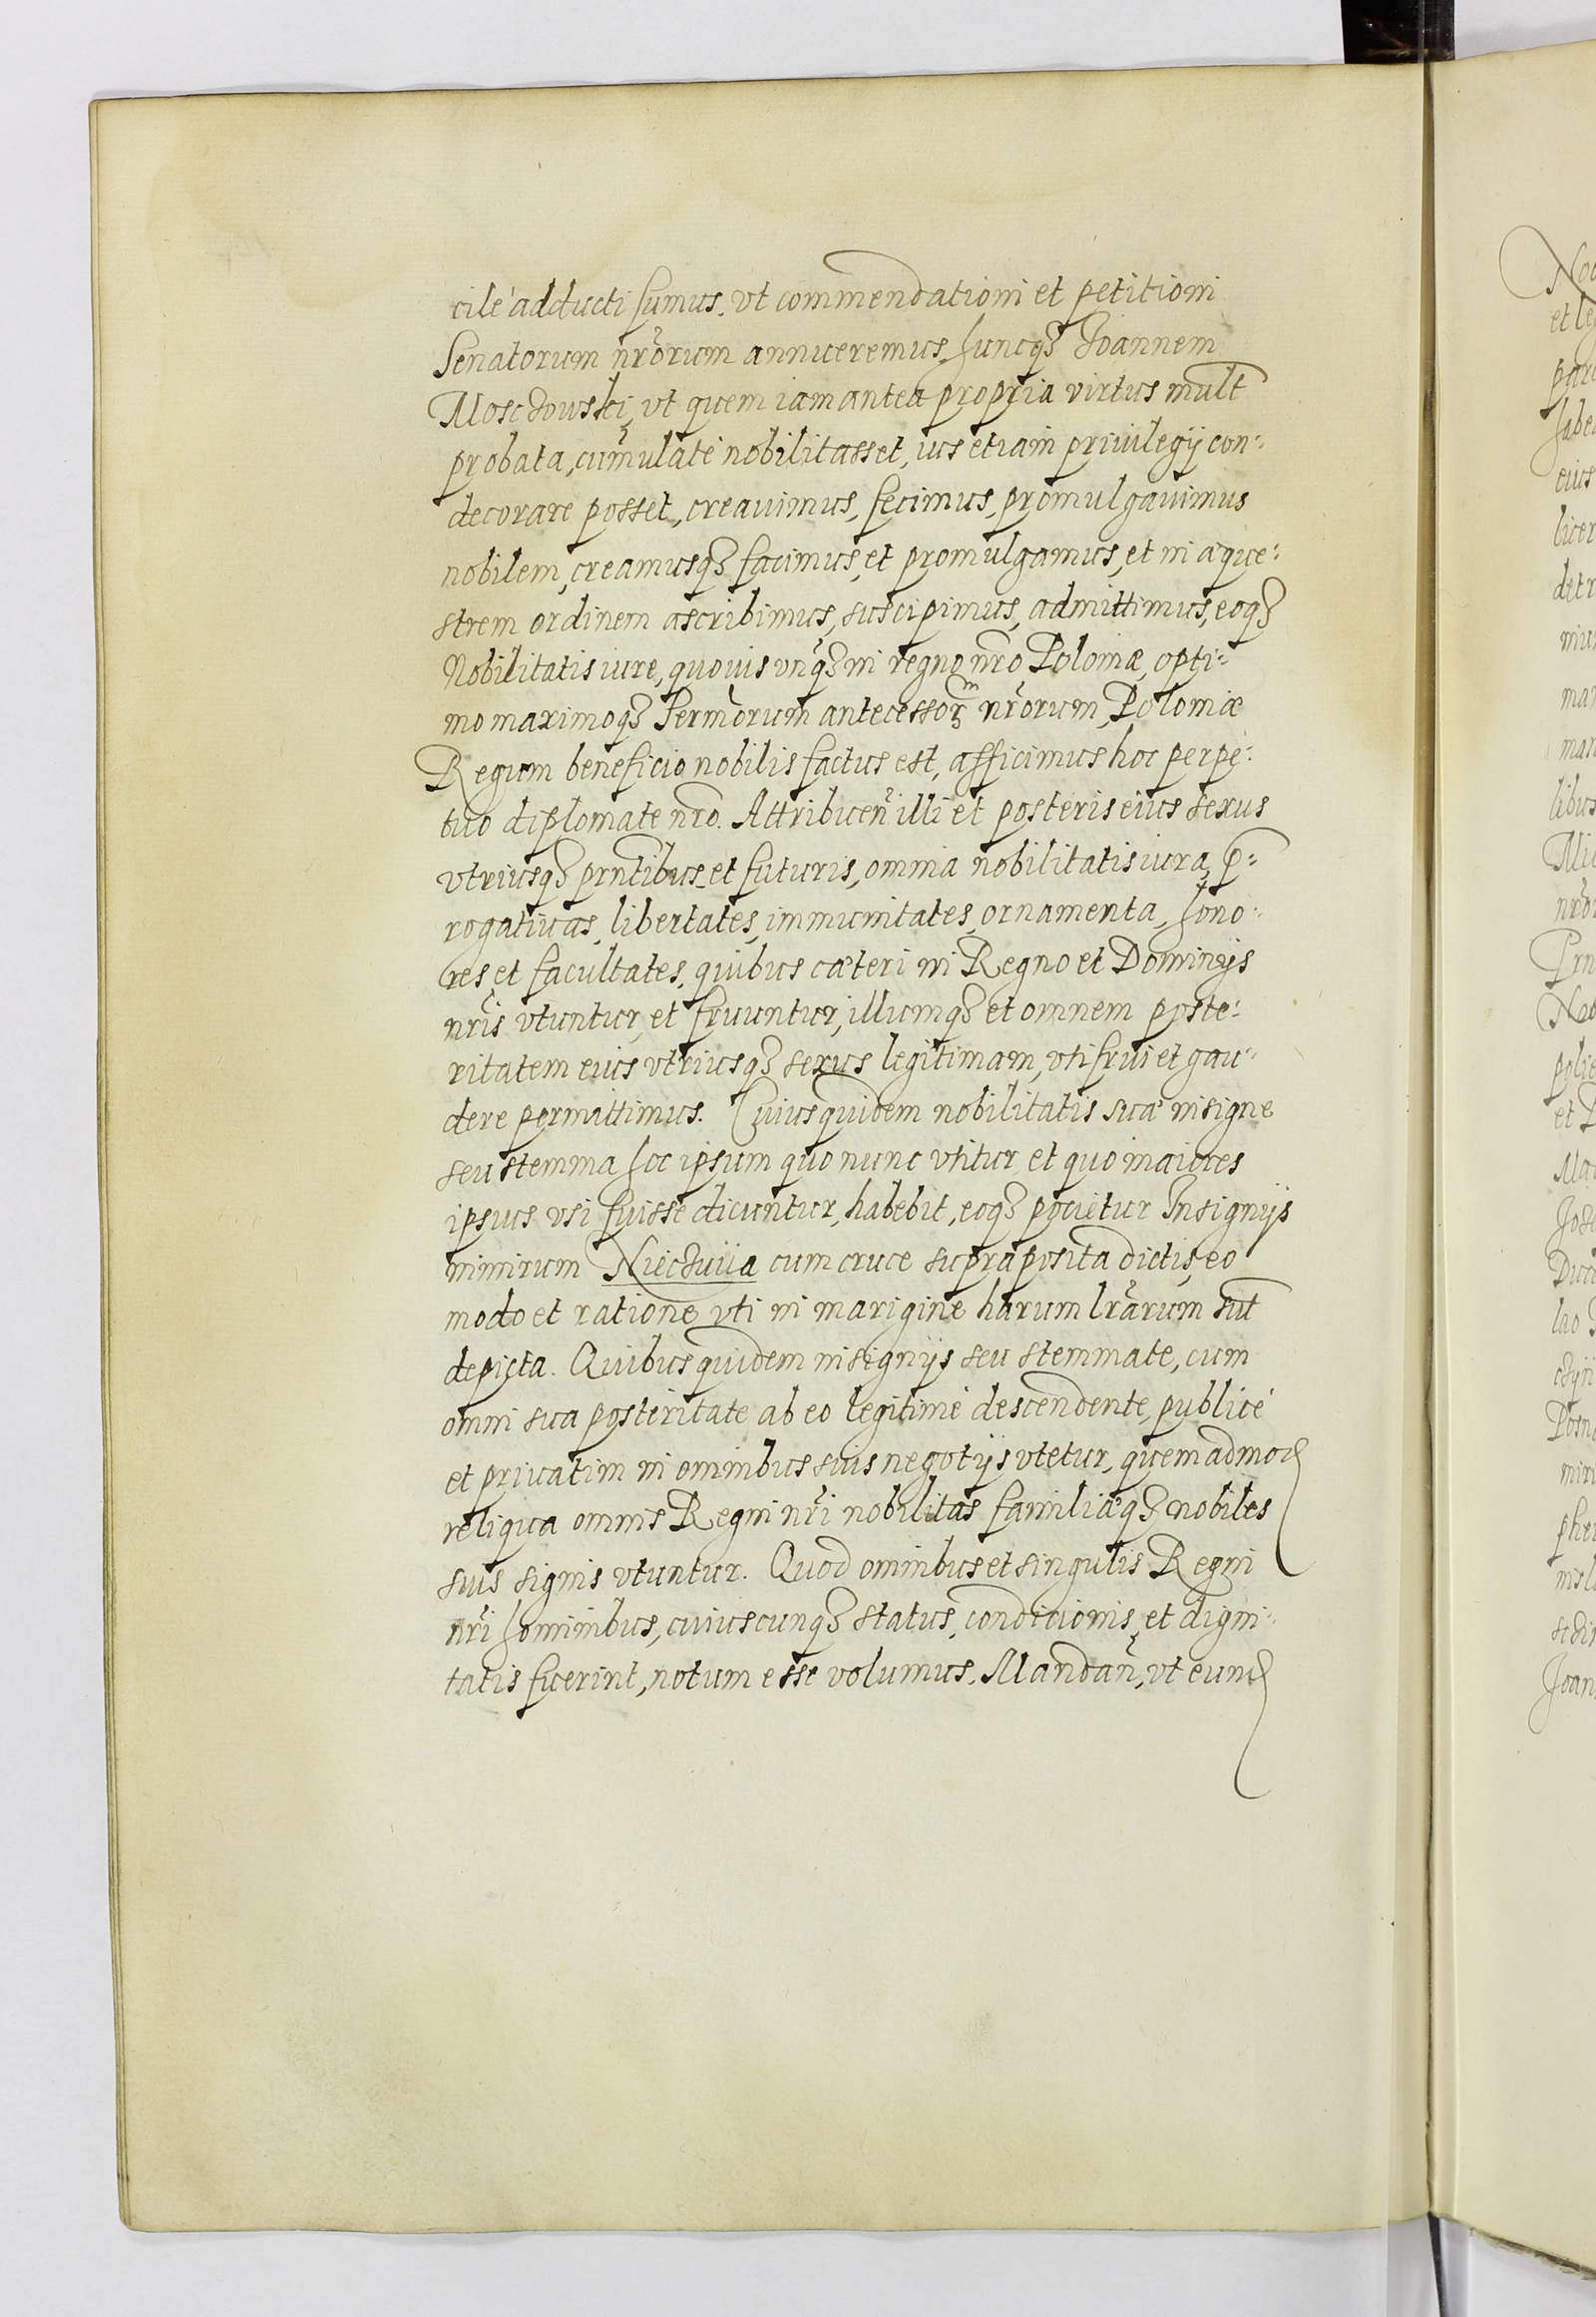 cilè adducti sumus, vt commendationi et petitioni
Senatorum nr̃orum annueremus, huncq₃ Ioannem
Moschowski, vt quem iam antea propria virtus mult̃
probata, cumulatè nobilitasset, ius etiam priuilegij con:
decorare posset, creauimus, fecimus, promulgauimus
nobilem, creamusq₃ facimus, et promulgamus, et in æque:
strem ordinem ascribimus, suscipimus, admittimus, eoq₃
Nobilitatis iure, quo uis vnq₃ in regno nr̃o Poloniæ, opti:
mo maximoq₃ Serm̃orum antecessoꝝ nr̃orum, Poloniæ
Regum beneficio nobilis factus est, afficimus hoc perpe:
tuo diplomate nr̃o. Attribuen̄ illi et posteris eius sexus
vtriusq₃ prn̄tibus et futuris, omnia nobilitatis iura, p̄:
rogatiuas, libertates, immunitates, ornamenta, hono:
res et facultates, quibus cæteri in Regno et Dominijs
nr̃is vtuntur, et fruuntur, illumq₃ et omnem poste:
ritatem eius vtriusq₃ sexus legitimam, vti frui et gau:
dere permittimus. Cuiusquidem nobilitatis suæ insigne
seu stemma hoc ipsum quo nunc vtitur et quo maiores
ipsius vsi fuisse dicuntur, habebit, eoq₃ pocietur Insignijs
nimirum Niechuiia cum cruce supraposita dictis, eo
modo et ratione vti in marigine harum lr̃arum sūt
depicta. Quibusquidem insignijs seu stemmate, cum
omni sua posteritate ab eo legitimè descendente, publicè
et priuatim in omnibus suis negotijs vtetur, quemadmod
reliqua omnis Regni nr̃i nobilitas familiæq₃ nobiles
suis signis vtuntur. Quod omnibus et singulis Regni
nr̃i hominibus, cuiuscunq₃ status, conditionis, et digni:
tatis fuerint, notum esse volumus. Mandan̄, vt eund